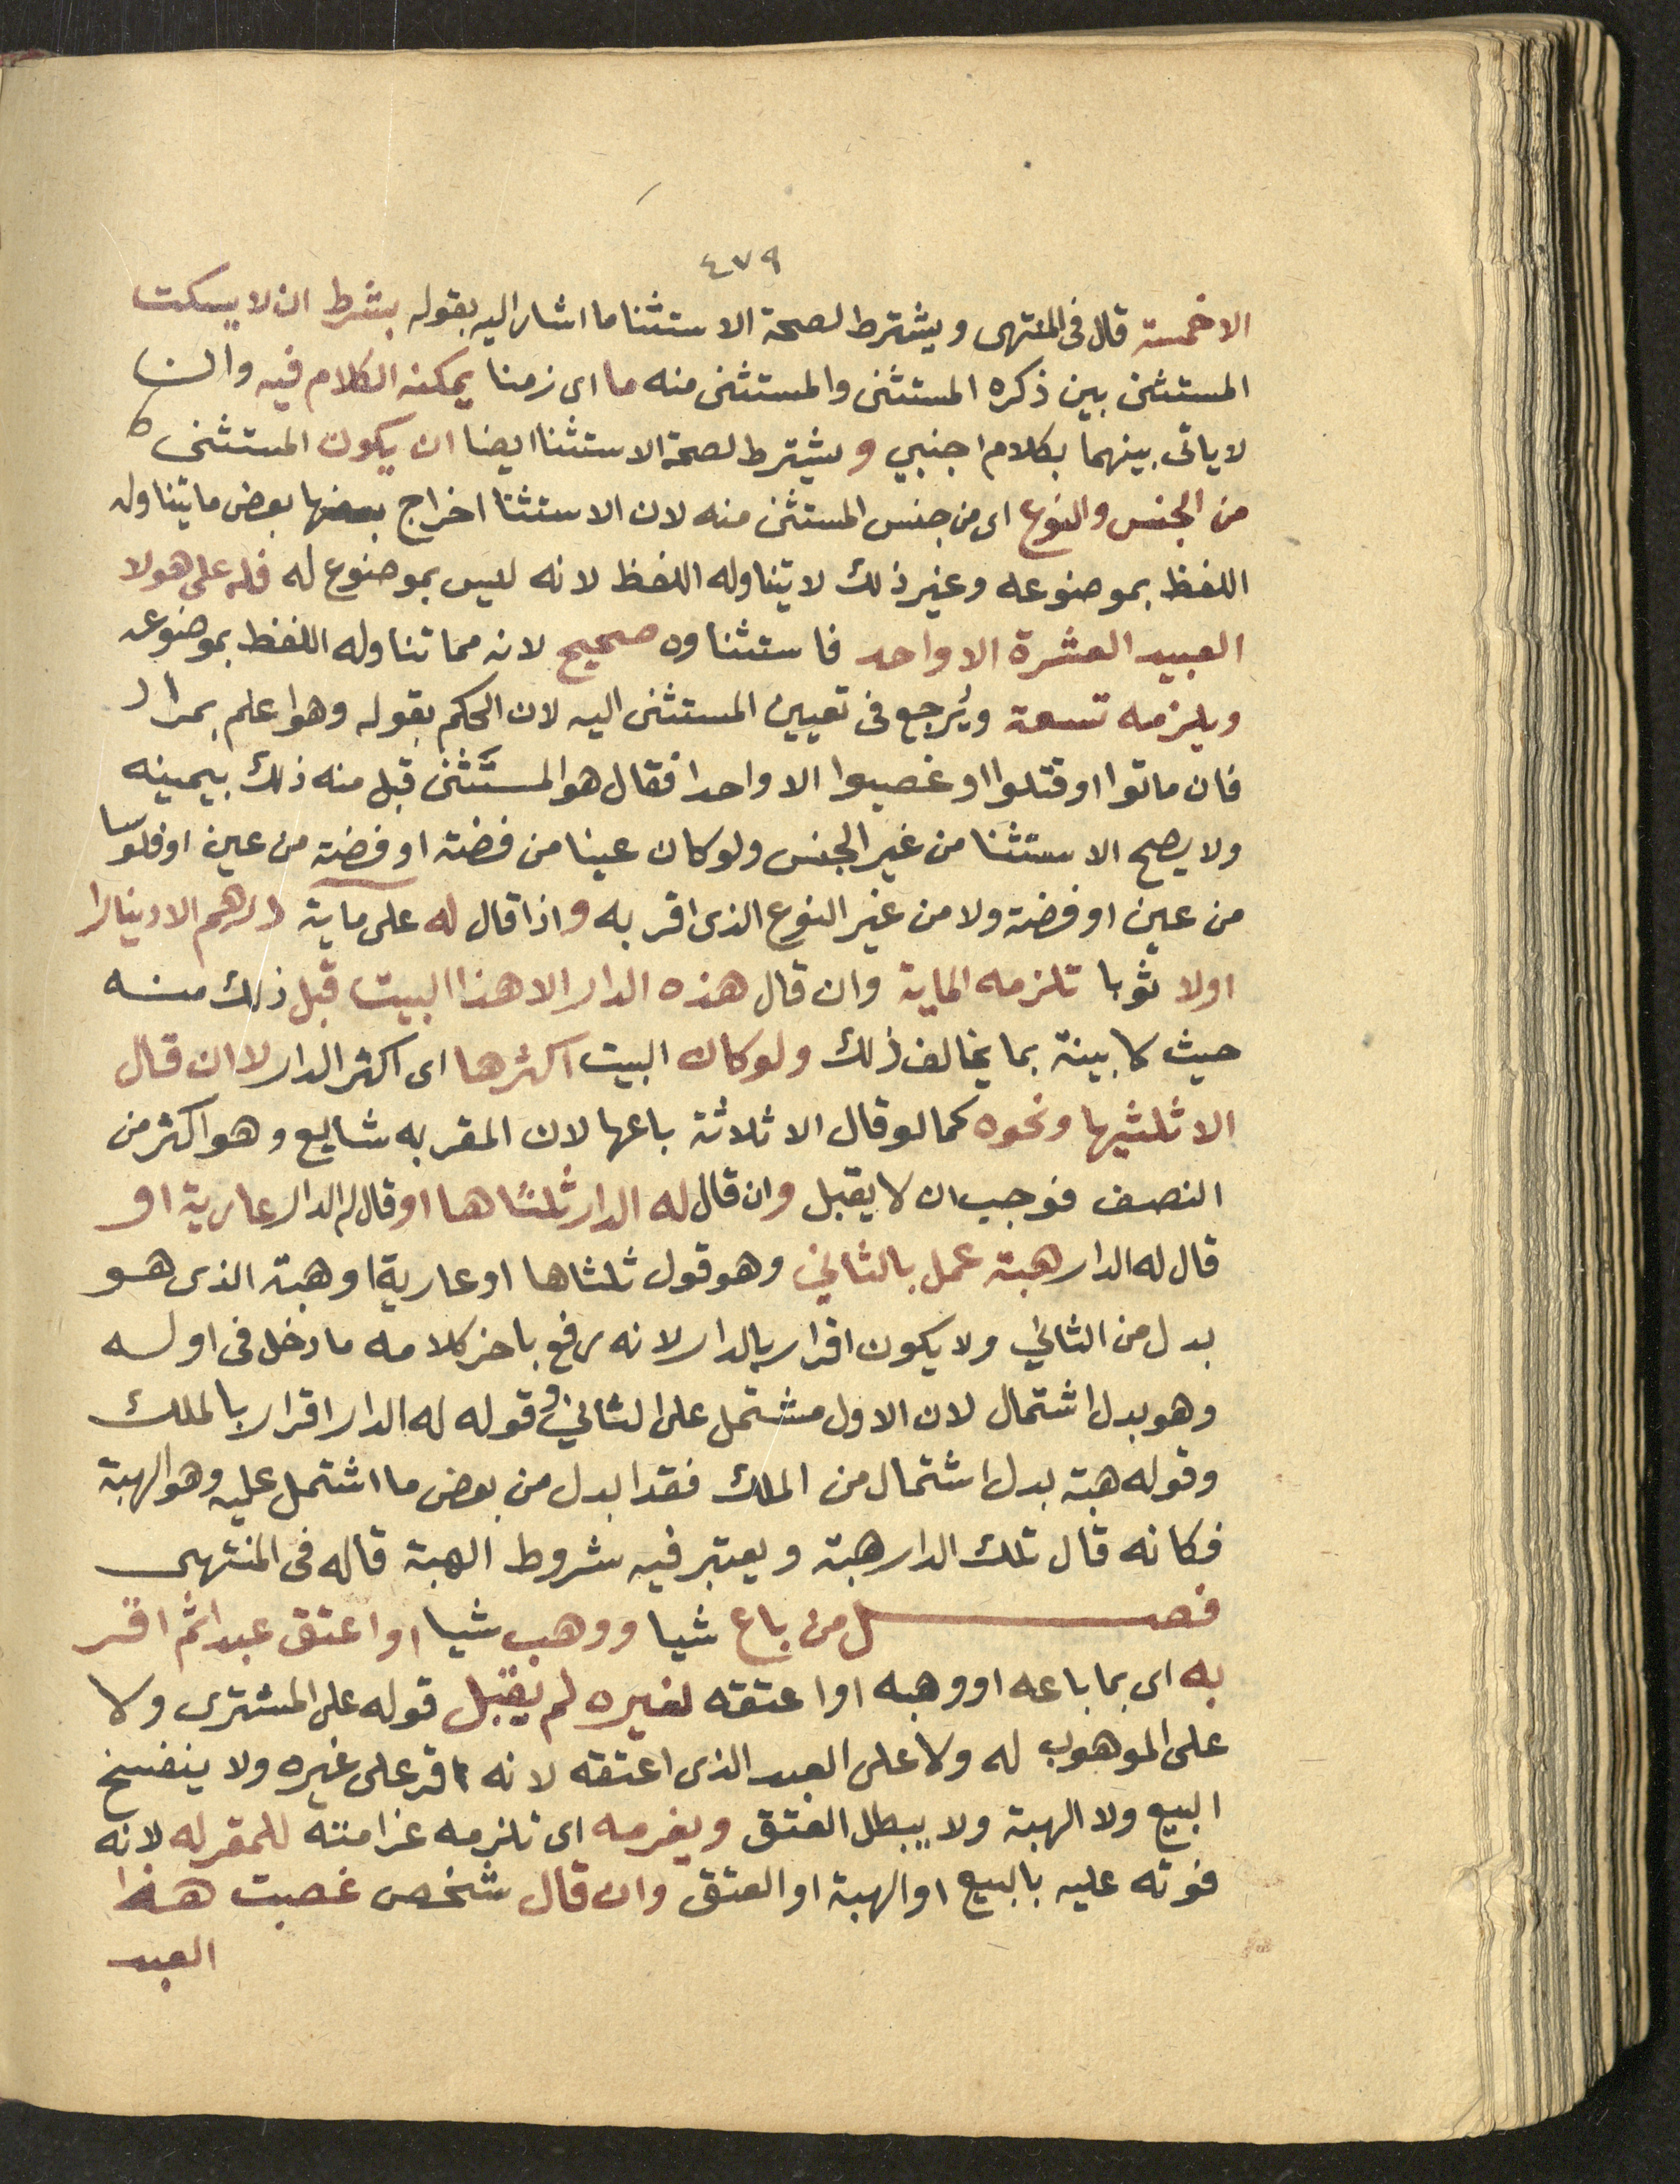 ٤٧٩
الا خمسة قال فى المنتهى ويشترط لصحة الاستثنا ما اشار اليه بقوله بشرط ان لا يسكت
المستثنى بين ذكره المستثنى والمستثنى منه ما اى زمنا يمكنه الكلام فيه وان
لا ياتى بينهما بكلام اجنبي ويشترط لصحة الاستثنا ايضا ان يكون المستثنى
من الجنس والنوع اى من جنس المستثنى منه لان الاستثنا اخراج بعض ما يتناوله
اللفظ بموضوعه وغير ذلك لا يتناوله اللفظ لانه ليس بموضوع له فله على هولا
العبيد العشرة الا واحد فاستثناوه صحيح لانه مما تناوله اللفظ بموضوعه
ويلزمه تسعة ويُرجع فى تعيين المستثنى اليه لان الحكم بقوله وهو اعلم بمراد
فان ماتوا او قتلوا او غصبوا الا واحدا فقال هو المستثنى قبل منه ذلك بيمينه
ولا يصح الاستثنا من غير الجنس ولو كان عينا من فضة او فضة من عين او فلوسا
من عين او فضة ولا من غير النوع الذى اقر به واذا قال له على ماية درهم الا دينارا
اولا ثوبا تلزمه الماية وان قال هذه الدار الا هذا البيت قبل ذلك منه
حيث لا بينة بما يخالف ذلك ولو كان البيت اكثرها اى اكثر الدار لا ان قال
الا ثلثيها ونحوه كما لو قال الا ثلاثة باعها لان المقر به شايع وهو اكثر من
النصف فوجب ان لا يقبل وان قال له الدار ثلثاها او قال له الدار عارية او
قال له الدار هبة عمل بالثاني وهو قول ثلثاها او عارية او هبة الذى هو
بدل من الثاني ولا يكون اقرار بالدار لانه رفع باخر كلامه ما دخل فى اوله
وهو بدل اشتمال لان الاول مشتمل على الثاني وقوله له الدار اقرار بالملك
وقوله هبة بدل اشتمال من الملك فقد ابدل من بعض ما اشتمل عليه وهو الهبة
فكانه قال تلك الدار هبة ويعتبر فيه شروط الهبة قاله فى المنتهى
فصل من باع شيا ووهب شيا او اعتق عبدا ثم اقر
به اى بما باعه او وهبه او اعتقه لغيره لم يقبل قوله على المشترى ولا
على الموهوب له ولا على العبد الذى اعتقه لانه اقر على غيره ولا ينفسخ
البيع ولا الهبة ولا يبطل العتق ويغرمه اى تلزمه غرامته للمقر له لانه
فوته عليه بالبيع او الهبة او العتق وان قال شخص غصبت هذا
العبد